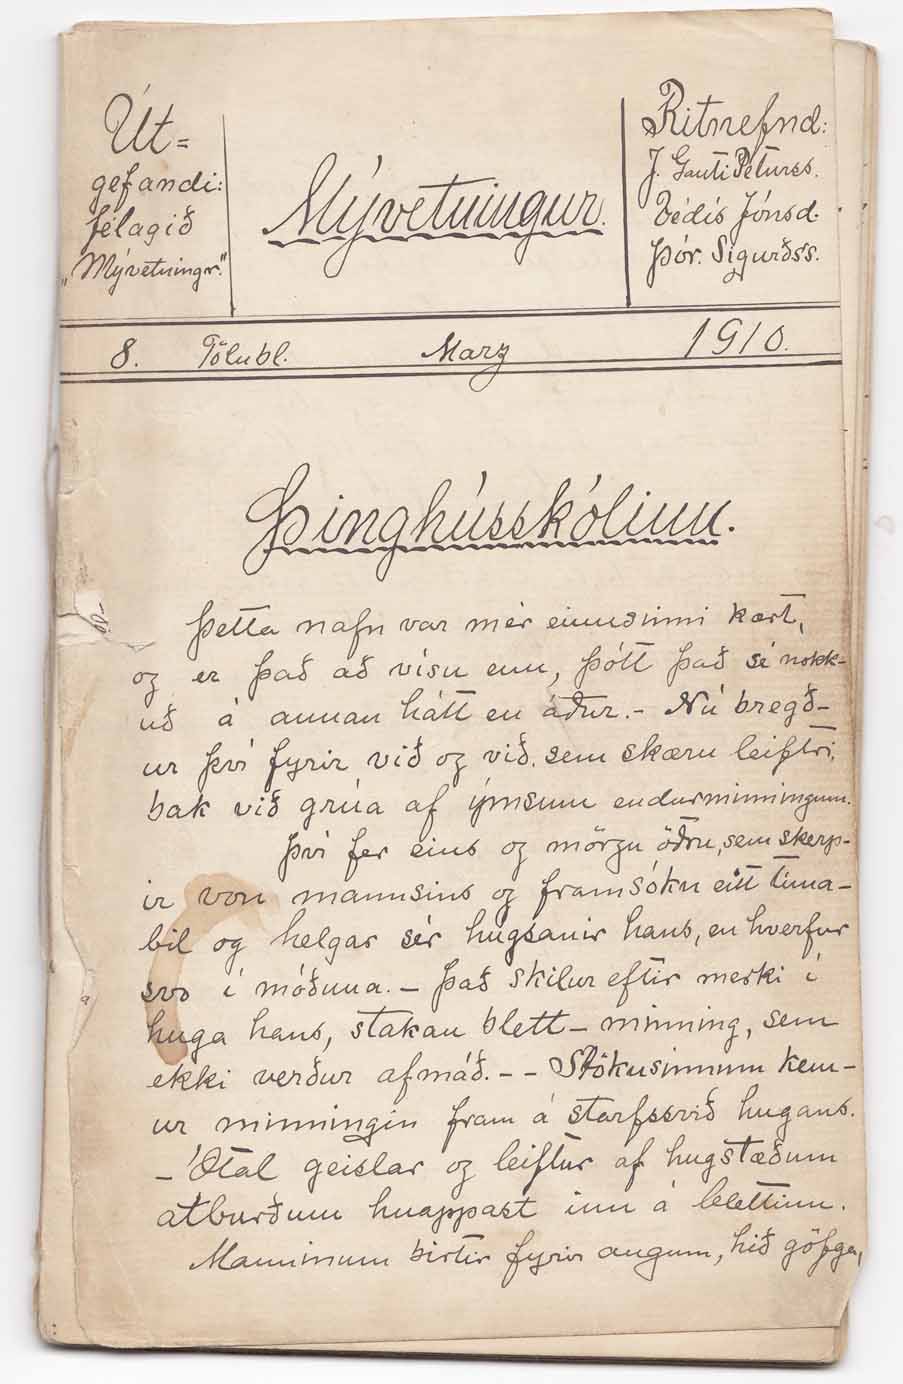 Út=
gefandi:
félagið
„Mývetningr."
Mývetningur.
Ritnefnd:
J. Gauti Péturss.
Védís Jónsd.
Þór. Sigurðss.
8. Tölubl. Marz 1910.
Þinghússkólinn.
Þetta nafn var mér einusinni kært,
og er það að vísu enn, þótt það sé nokk-
uð á annan hátt en áður. - Nú bregð-
ur því fyrir við og við, sem skæru leiftri,
bak við grúa af ýmsum endurminningum.
Því fer eins og mörgu öðru, sem skerp-
ir von mannsins og framsókn eitt tíma-
bil og helgar sér hugsanir hans, en hverfur
svo í móðuna. - Það skilur eftir merki í
huga hans, stakan blett - minning, sem
ekki verður afmáð. - - Stökusinnum kem-
ur minningin fram á starfssvið hugans.
- Ótal geislar og leiftur af hugstæðum
atburðum hnappast inn á blettinn.
Manninum birtir fyrir augum, hið göfga,